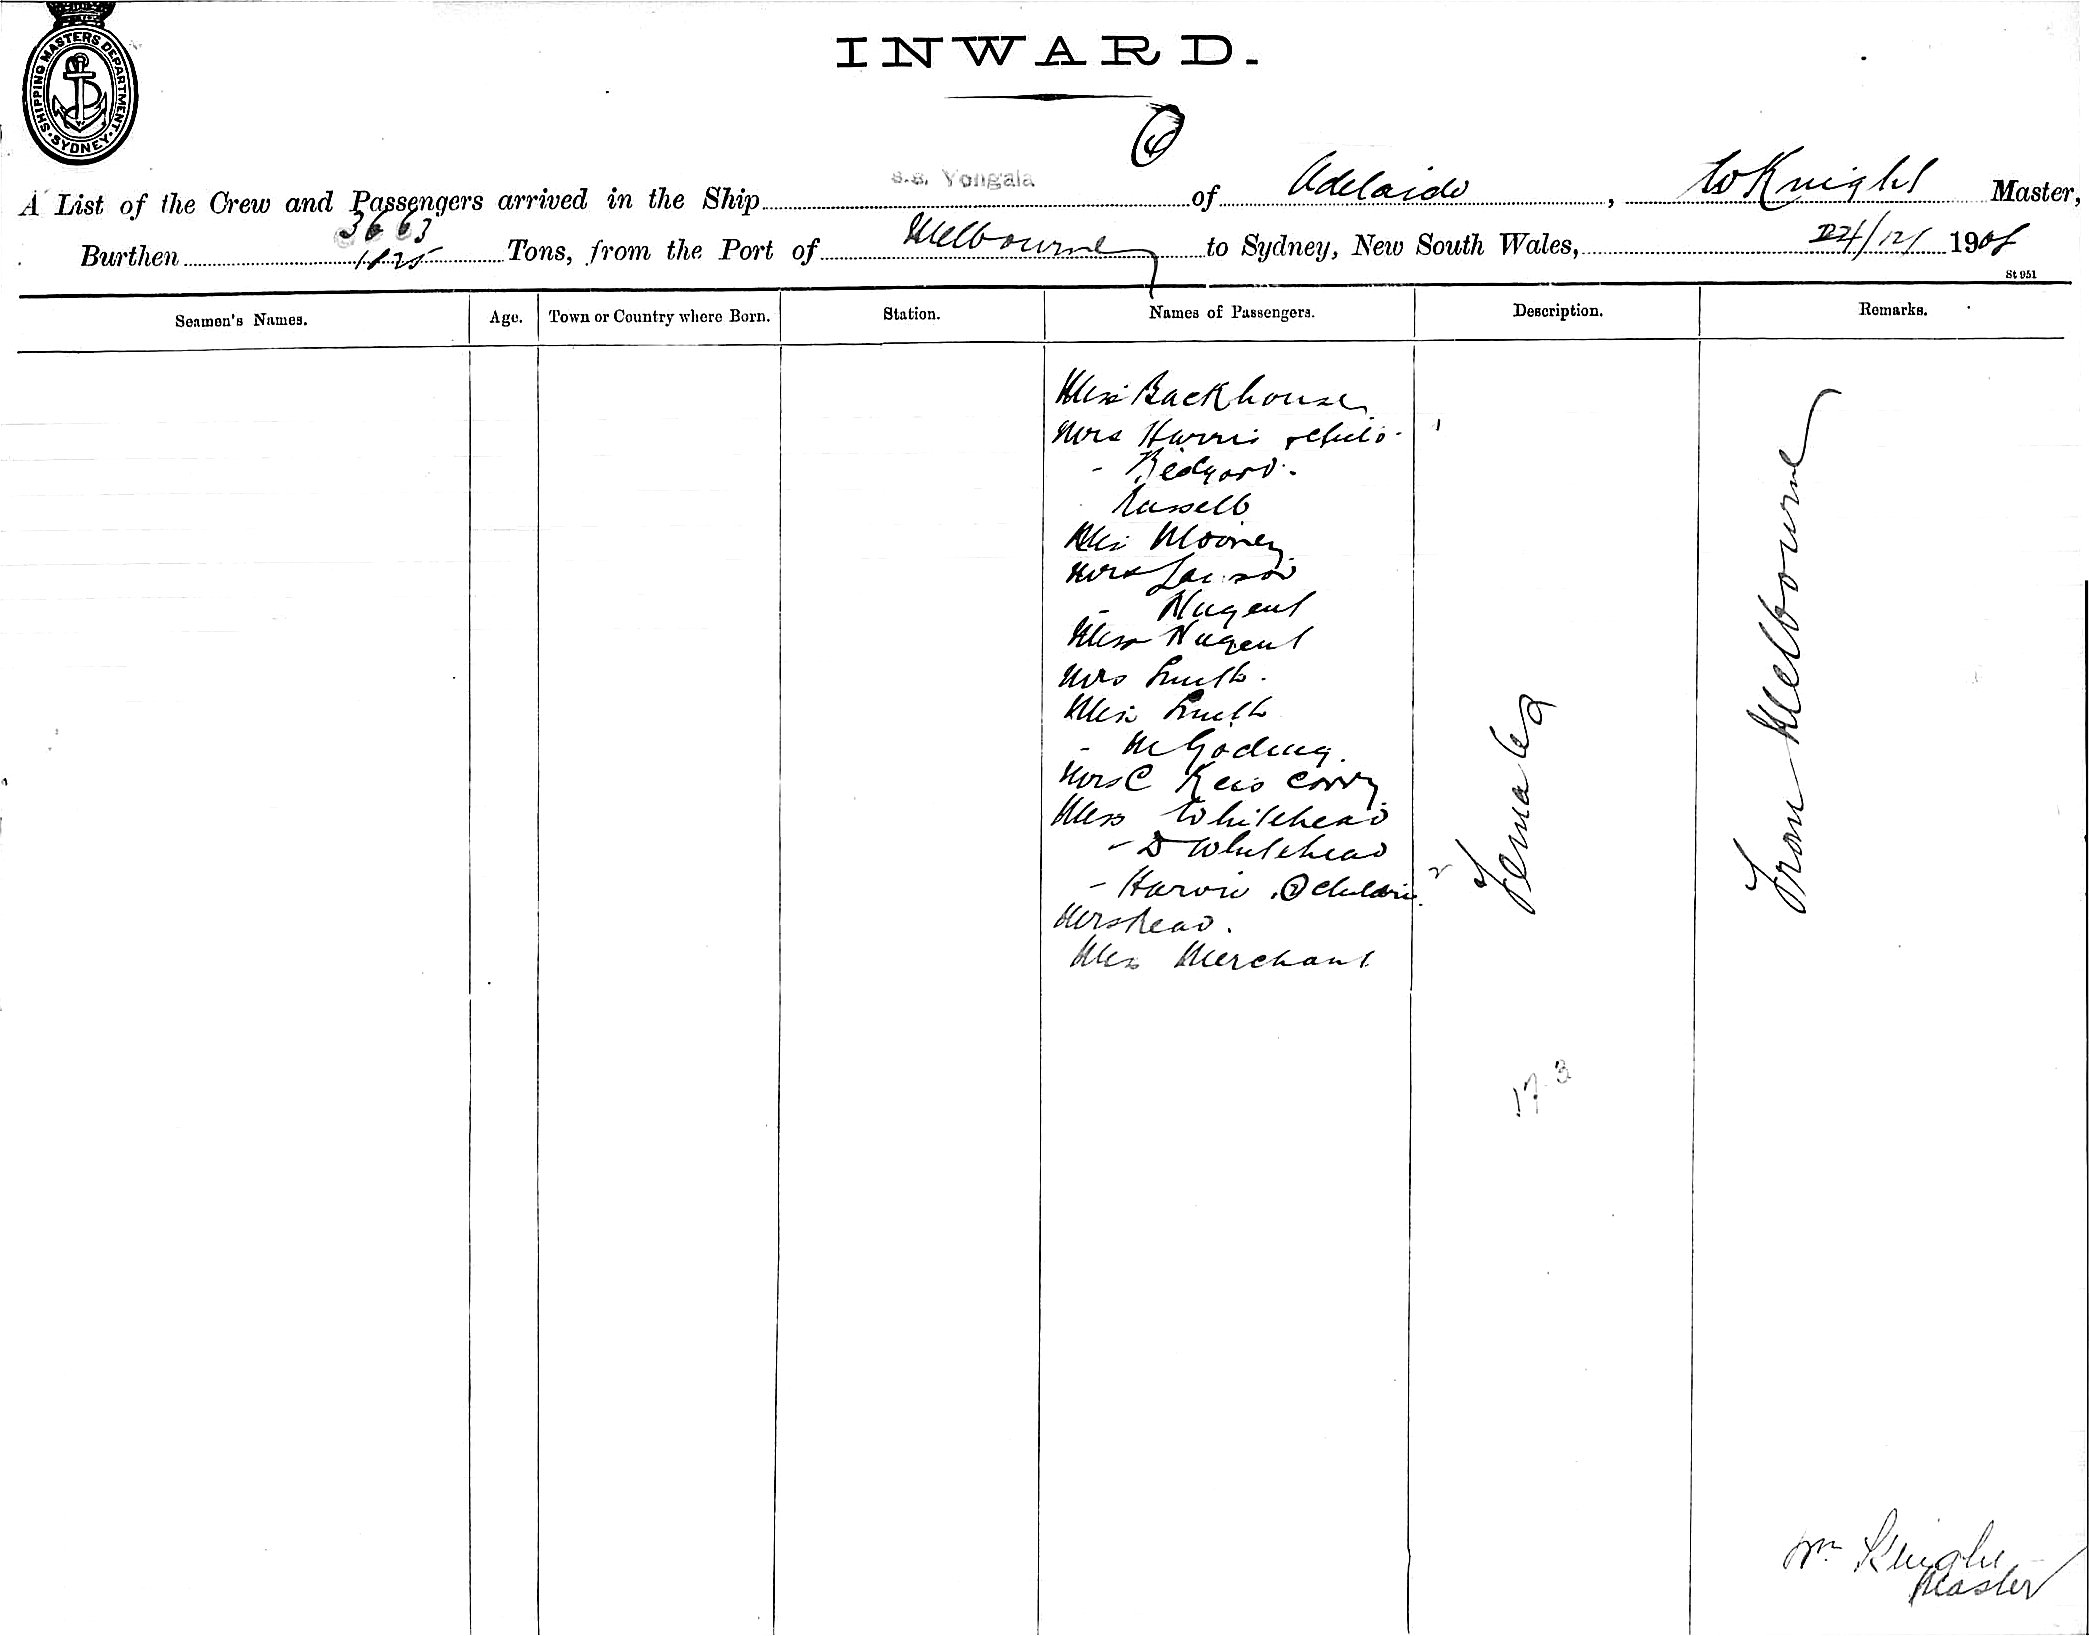 SHIPPING MASTERS DEPARTMENT
SYDNEY
INWARD.
6
A List of the Crew and Passengers arrived in the Ship s.s. Yongala of Adelaide, W Knight Master,
Burthen 3663 1825 Tons, from the Port of Melbourne to Sydney, New South Wales, 24/12/ 1908
St 951
Seamen's Names. Age. Town or Country where Born. Station. Names of Passengers. Description. Remarks.
Miss Backhouse
Mrs Harris & child - 1
-
Russell
Miss Mooney
Mrs
- Nugent
Miss Nugent
Mrs Smith.
Miss Smith
- M Goding.
Mrs C Reis Corry
Miss Whitehead
- D Whitehead
- Harvie 2 children 2
Mrs Read.
Miss Merchant
Females
From Melbourne
17 3
Wm Knight
Master